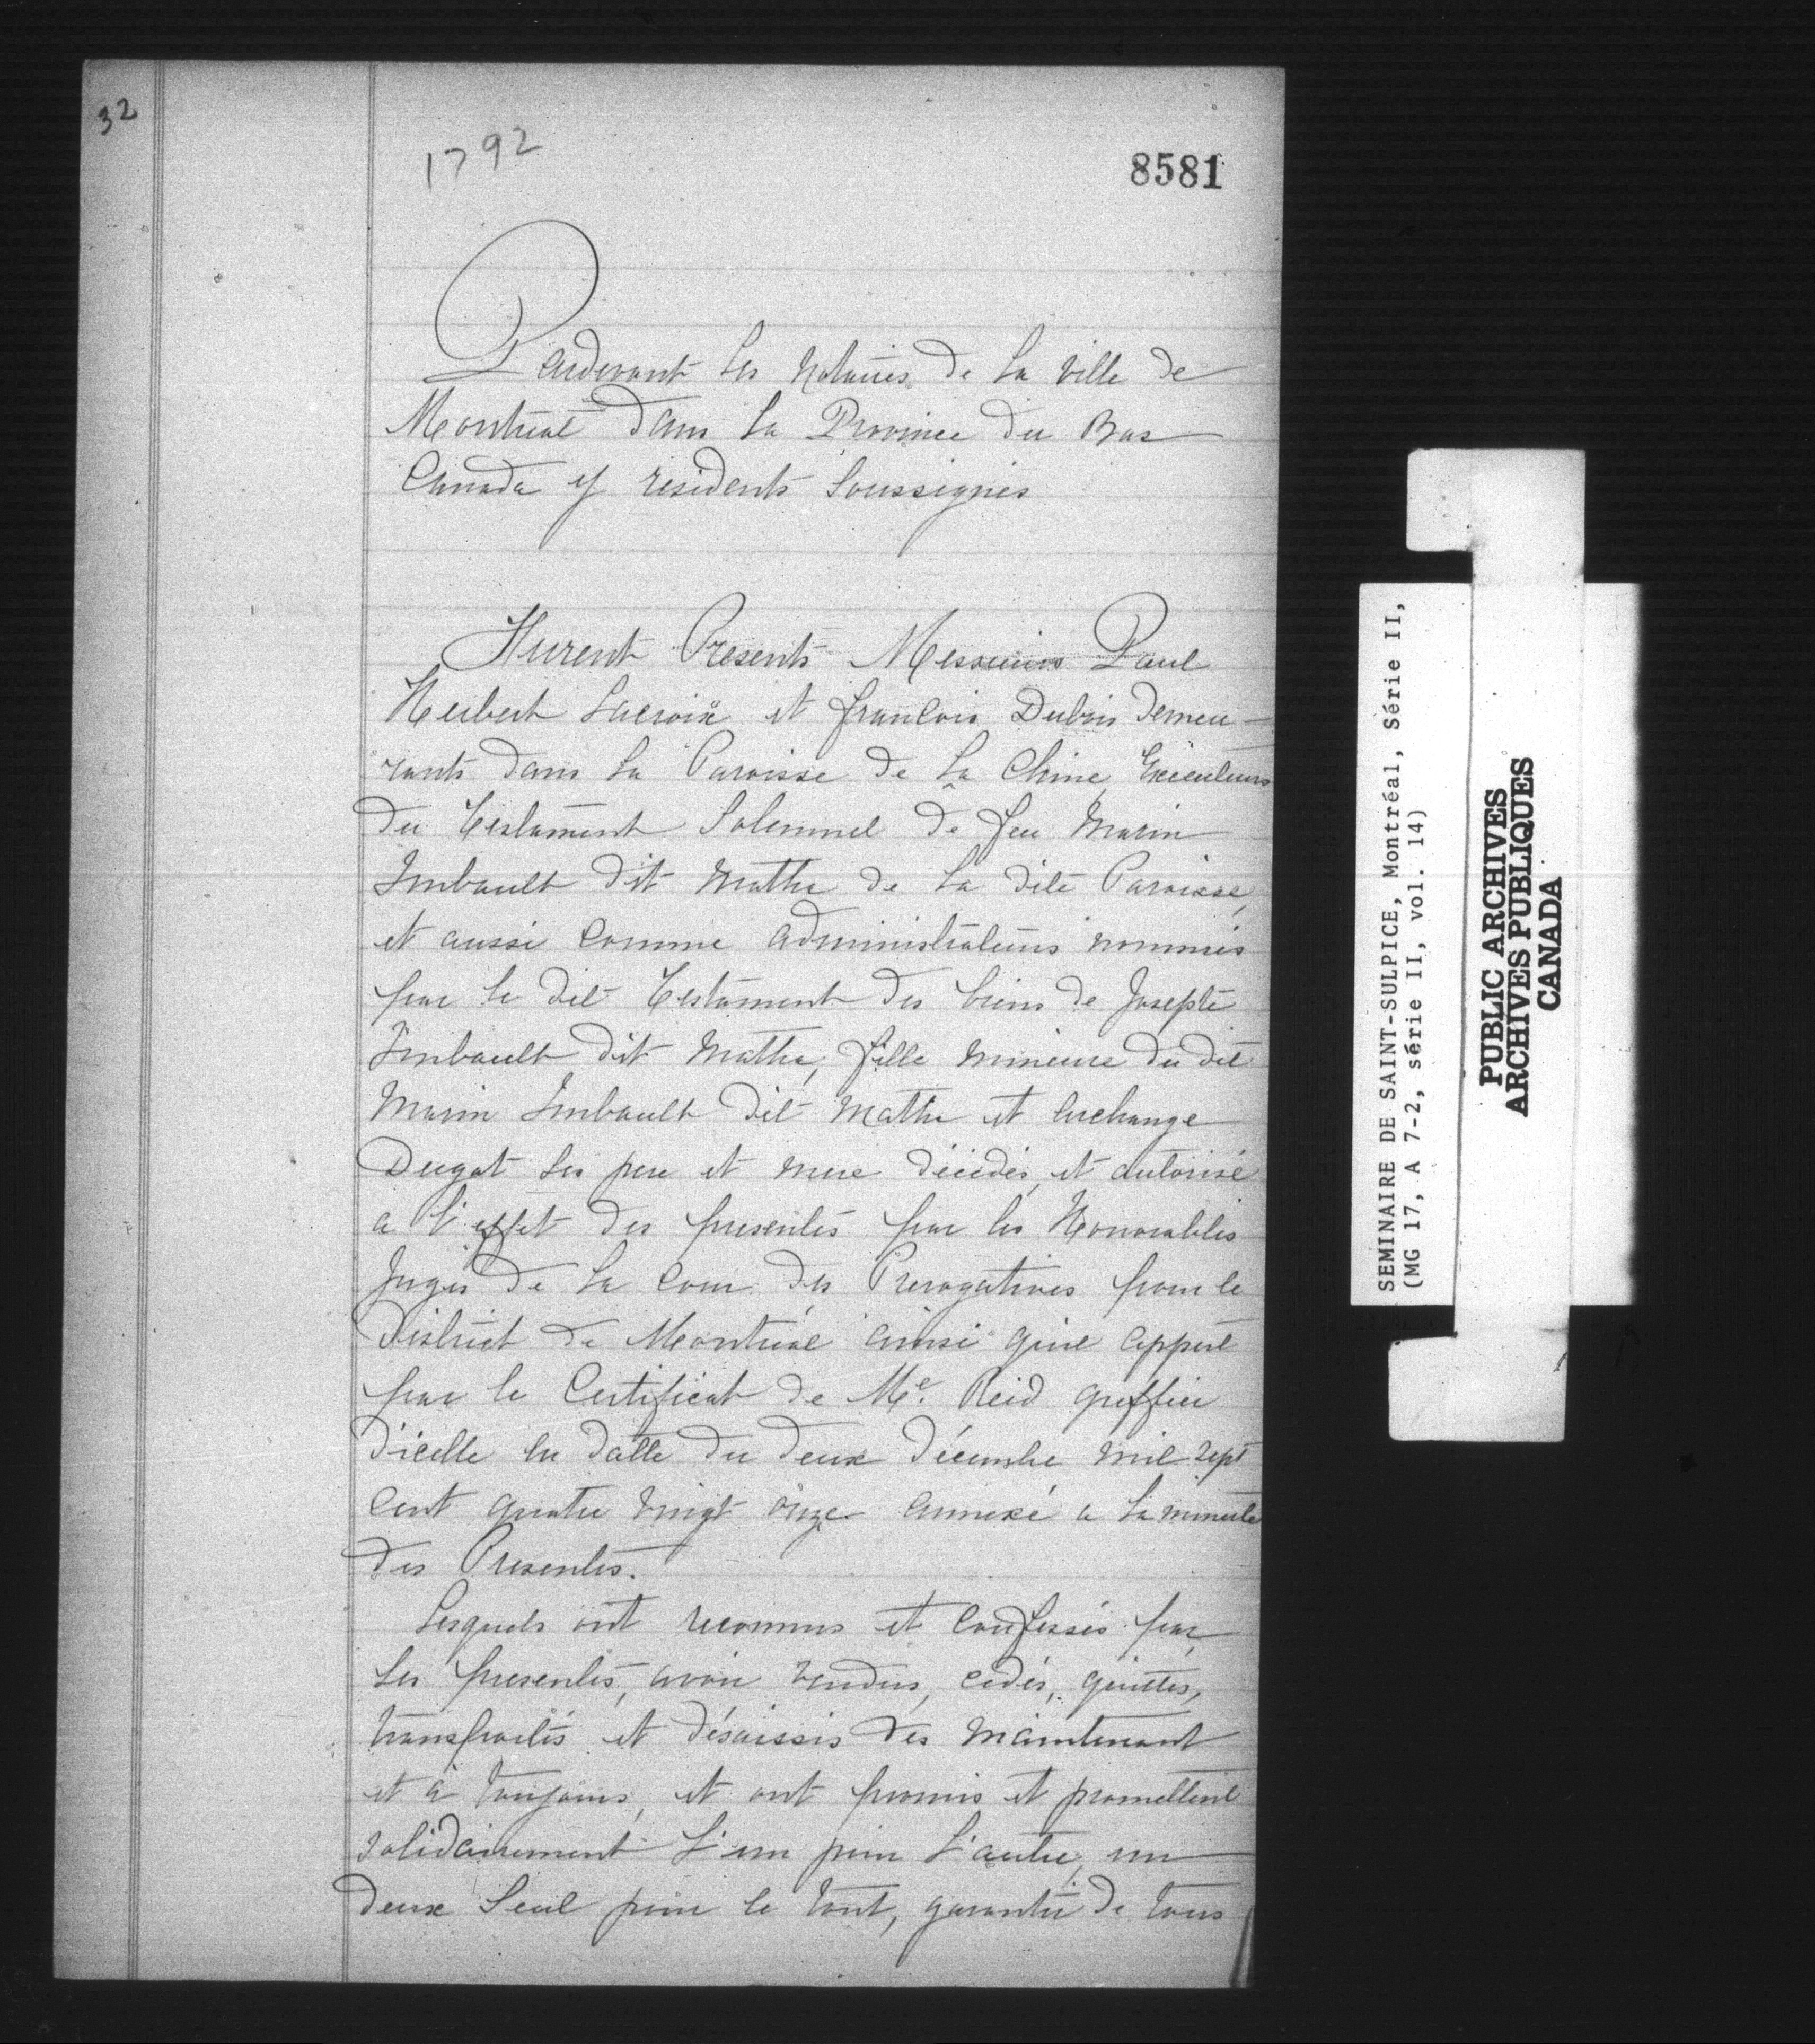 32
1792
8581
Pardevant Les Notaires de La Ville de
Montreal dans La Province du Bas
Canada y residents Soussignés
Furent Presents Messieurs Paul
Heubert Lacroix et francois Dubois demeu-
rants dans La Paroisse de La Chine, Exécuteurs
du Testament Solemnel de feu Marin
Imbault dit Matha de La dite Paroisse,
et aussi comme administrateurs nommés
par le dit Testament des biens de Josepte
Imbault dit Matha, fille mineure du dit
Marin Imbault dit Matha et Archange
Dugat Ses pere et mere décédés, et autorisé
a l'effet des presentes par les Honorables
Juges de La Cour des Prerogatives pour le
District de Montréal ainsi qu'il appert
par le Certificat de Me. Reid Greffier
d'icelle en datte du deux décembre mil sept
cent quatre vingt onze annexé a La minute
des Presentes.
Lesquels ont reconnus et confessés par
Les presentes, avoir vendus, cedés, quittés,
transportés et désaissis des maintenant
et à toujours, et ont promis et promettent
solidairement L'un pour L'autre, un
deux Seul pour le tout, garantir de tous
SEMINAIRE DE SAINT-SULPICE, Montréal, Série II,
(MG 17, A 7-2, série II, vol. 14)
PUBLIC ARCHIVES
ARCHIVES PUBLIQUES
CANADA